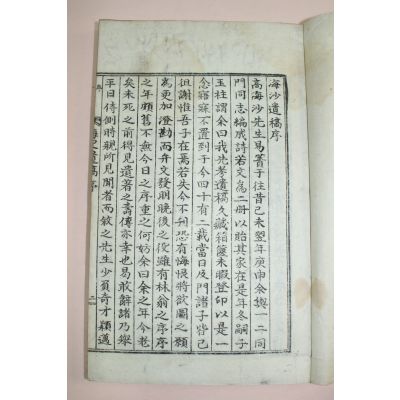 海沙遺稿序
高海沙先生易簀于往昔己未翌年庚申余與一二同
門同志編成詩若文為二冊以貽其家在是年冬嗣子
玉柱謂余曰我先考遺稿久藏箱篋未暇登印以是一
念寤寐不置到于今四十有二載當日及門諸子皆已
徂謝惟吾子在焉若失今不刋恐有悔恨將欲圖之願
為更加澄勘而弁文發朔晩後之役雖有林翁之序序
之年頗舊不無今日之序重之何妨余曰余之年今耄
矣未死之前得見遺著之壽傳亦幸也易敢辭諸乃舉
平日侍側時親所見聞者而敘之先生少負奇才穎邁
海沙遺稿序